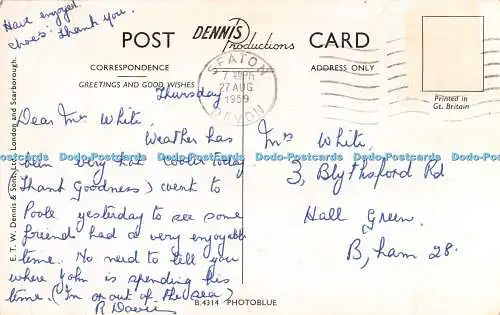 Have enjoyed
Chocs. Thank you.
POST
DENNIS
Productions
CARD
CORRESPONDENCE
ADDRESS ONLY
GREETINGS AND GOOD WISHES
SEATON
7 PM
27 AUG
1959
DEVON
Printed in
Gt. Britain
E. T. W. Dennis & Sons Ltd., London and Scarborough.
Thursday
Dear Mrs White,
Weather has
been very hot cooler today
(Thank Goodness) went to
Poole yesterday to see some
friends had a very enjoyable
time. No need to tell you
where John is spending his
time. (In or out of the sea)
R Davies
Mrs White,
3, Blythsford Rd
Hall Green.
B,ham 28.
B.4314 PHOTOBLUE
Dodo-Postcards Dodo-Postcards Dodo-Postcards Dodo-Postcards Dodo-Postcards Dodo-Postcards